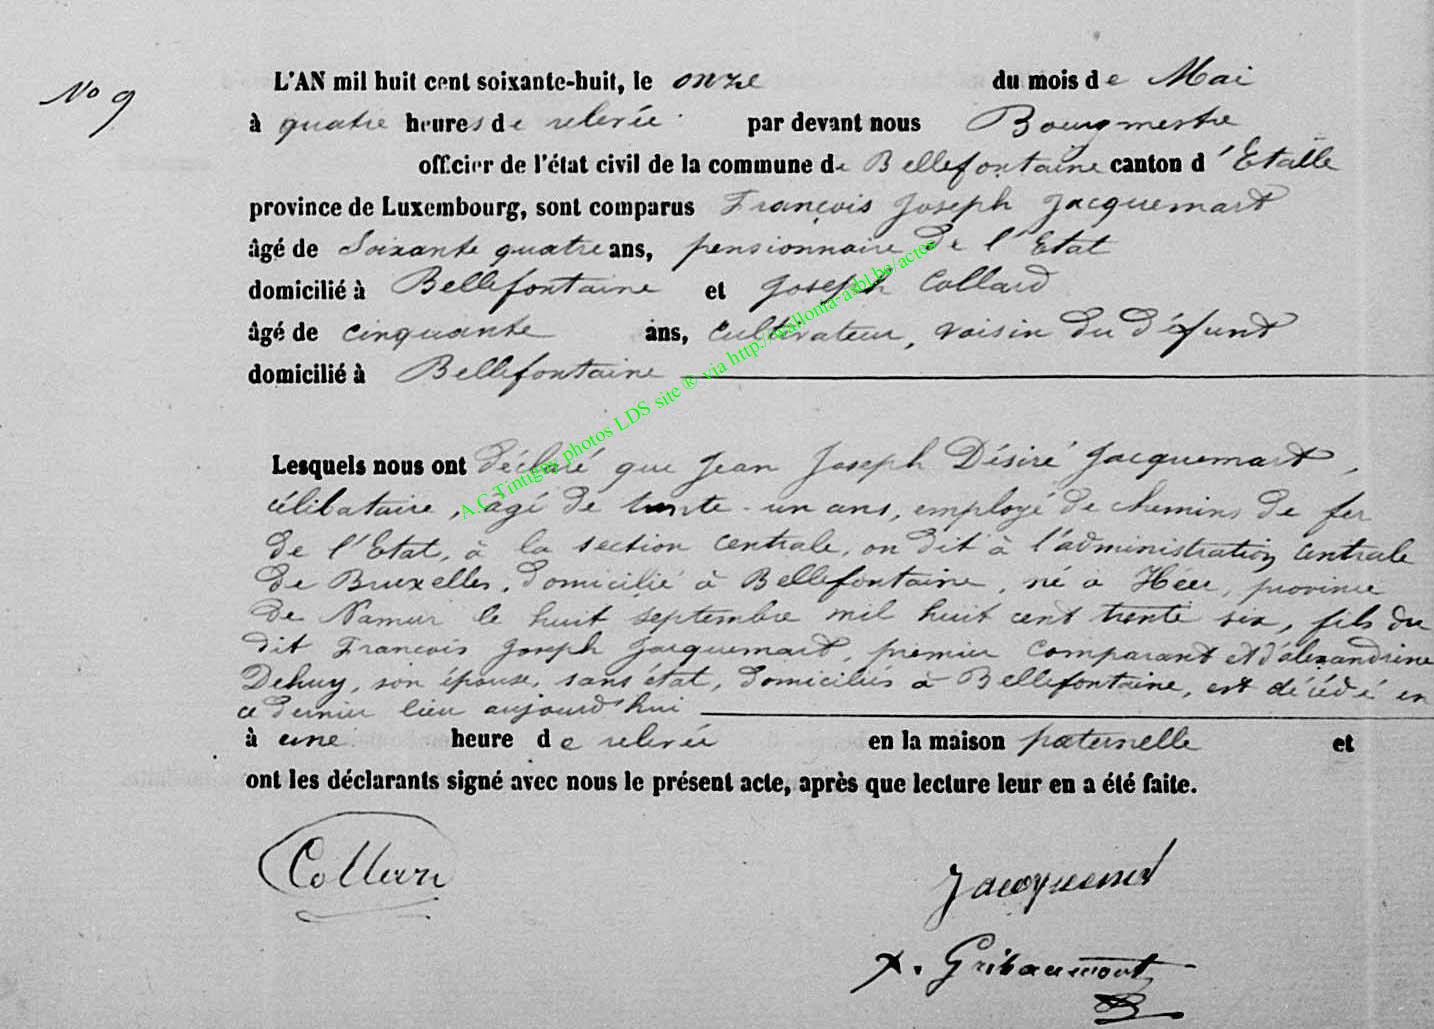 No 9
L'AN mil huit cent soixante-huit, le onze du mois de Mai
à quatre heures de relevée par devant nous Bourgmestre
officier de l'état civil de la commune de Bellefontaine canton d'Etalle
province de Luxembourg, sont comparus François Joseph Jacquemart
âgé de Soixante quatre ans, pensionnaire de l'Etat
domicilié à Bellefontaine et Joseph Collard
âgé de cinquante ans, cultivateur, voisin du défunt
domicilié à Bellefontaine
Lesquels nous ont déclaré que Jean Joseph Désiré Jacquemart,
célibataire, âgé de trente-un ans, employé de chemins de fer
de l'Etat, à la section centrale, on dit à l'administration centrale
de Bruxelles, domicilié à Bellefontaine, né à Héer, province
de Namur le huit septembre mil huit cent trente six, fils du
dit François Joseph Jacquemart, premier comparant et d'alexandrine
Dehuy, son épouse, sans état, domiciliés à Bellefontaine, est décédé en
ce dernier lieu aujourd'hui
à une heure de relevée en la maison paternelle et
ont les déclarants signé avec nous le présent acte, après que lecture leur en a été faite.
Collard
Jacquemart
Gribaumont
A.C Tintigny photos LDS site ® via http://wallonia-asbl.be/actes